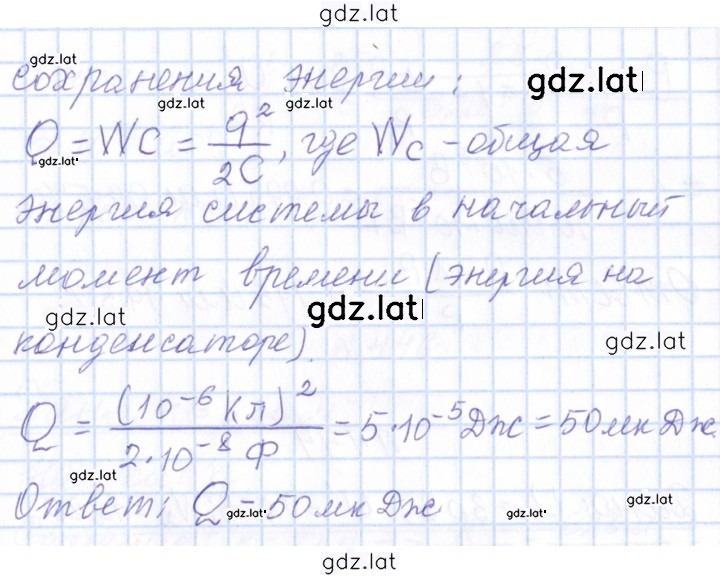 gdz.lat
gdz.lat
сохранения энергии:
gdz.lat
gdz.lat gdz.lat
Q = Wc = q²/2C, где Wc - общая
gdz.lat
энергия системы в начальный
момент времени (энергия на
gdz.lat gdz.lat
конденсаторе).
gdz.lat
Q = (10⁻⁶ Кл)²/2·10⁻⁸ Ф = 5·10⁻⁵ Дж = 50 мк Дж.
gdz.lat
Ответ: Q = 50 мк Дж.
gdz.lat gdz.lat gdz.lat
gdz.lat